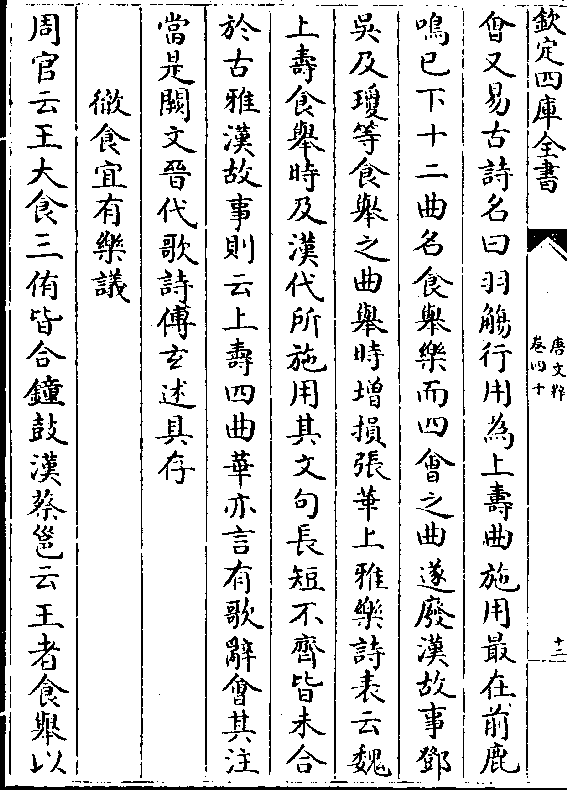 欽定四庫全書
唐文粹
卷四十
十三
會又易古詩名曰羽觴行用為上壽曲施用最在前鹿
鳴已下十二曲名食舉樂而四會之曲遂廢漢故事鄧
吳及瓊等食舉之曲舉時增損張華上雅樂詩表云魏
上壽食舉時及漢代所施用其文句長短不齊皆未合
於古雅漢故事則云上壽四曲華亦言有歌辭會其注
當是闕文晉代歌詩傅玄述具存
徹食宜有樂議
周官云王大食三侑皆合鐘鼓漢蔡邕云王者食舉以